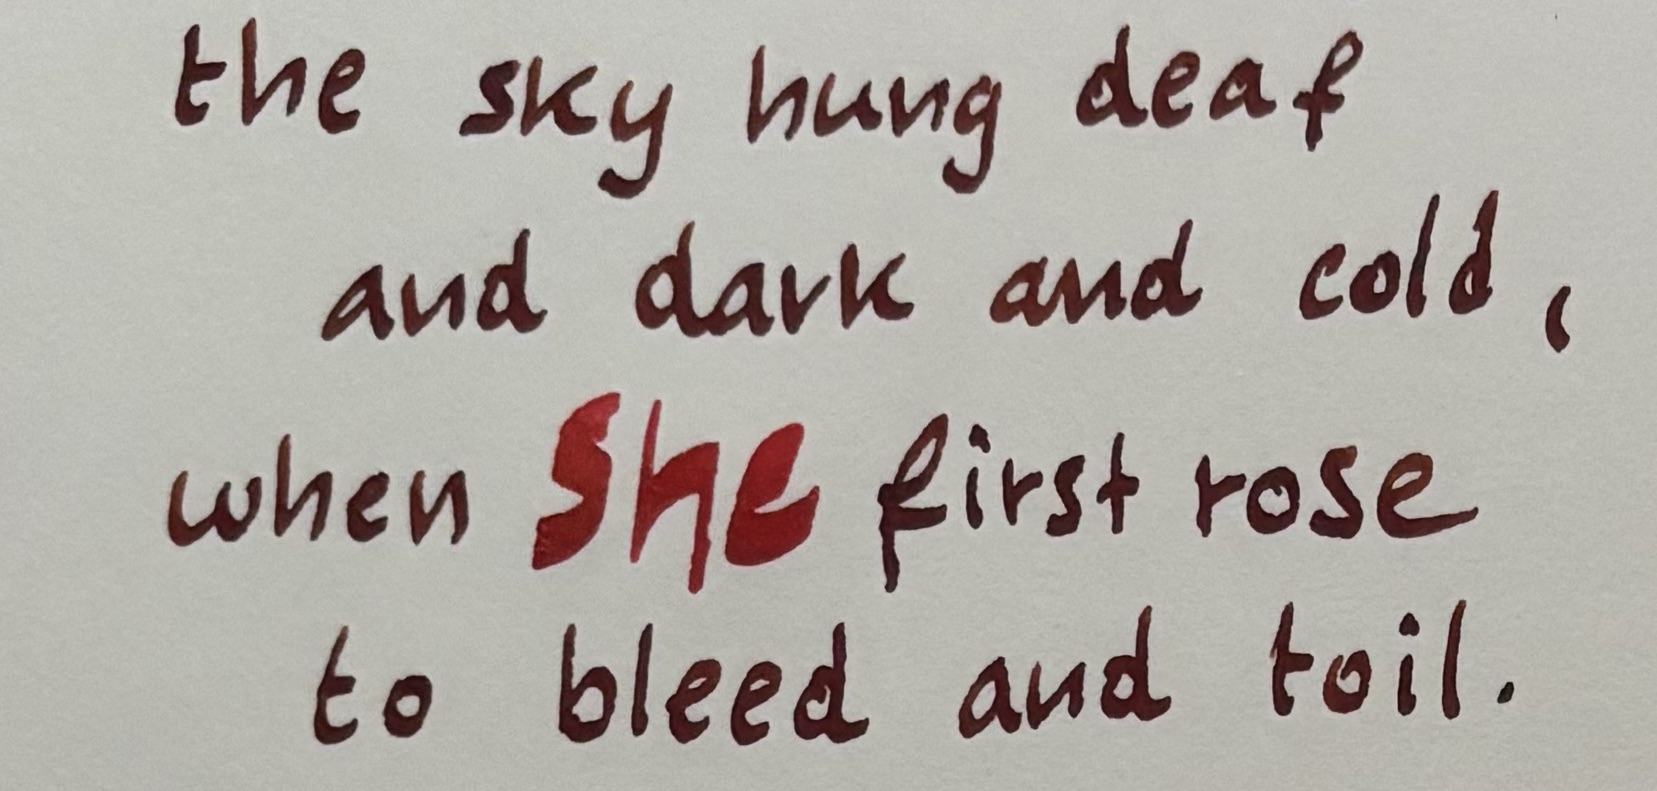 the sky hung deaf
and dark and cold,
when She first rose
to bleed and toil.